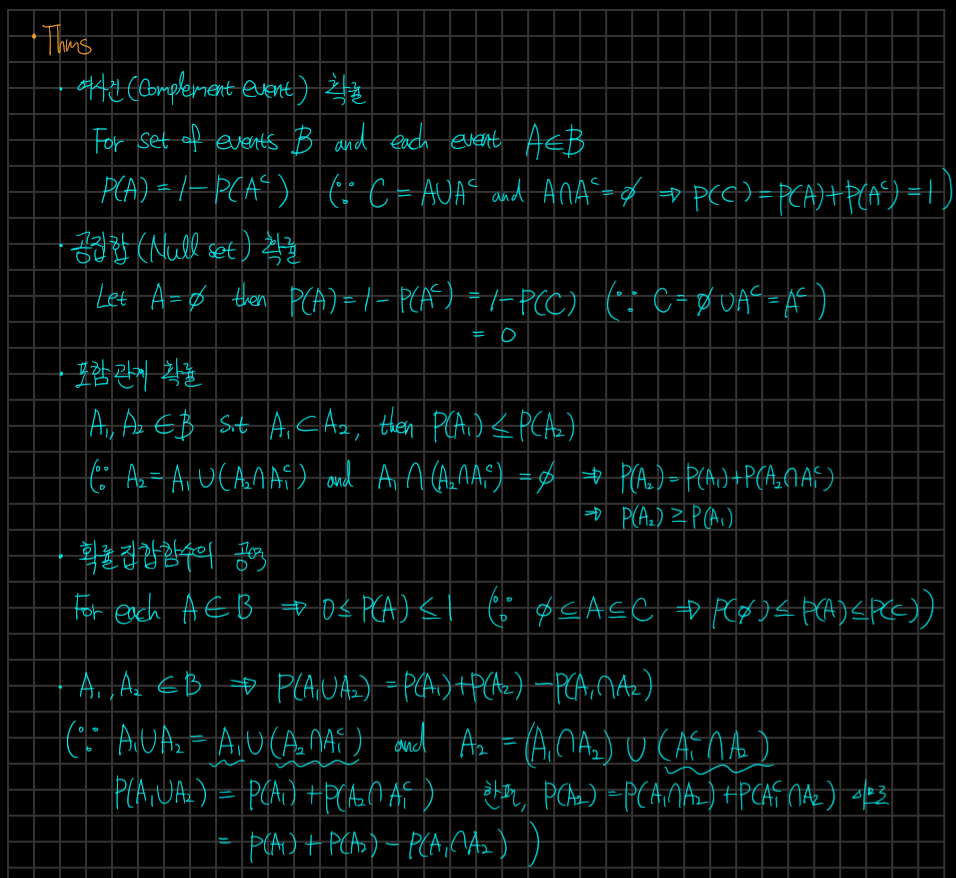 · Thms
· 여사건 (Complement event) 확률
For set of events B and each event A∈B
P(A) = 1 - P(Aᶜ) (∵ C = A∪Aᶜ and A∩Aᶜ = ∅ ⇒ P(C) = P(A)+P(Aᶜ) = 1)
· 공집합 (Null set) 확률
Let A = ∅ then P(A) = 1 - P(Aᶜ) = 1 - P(C) (∵ C = ∅∪Aᶜ = Aᶜ)
= 0
· 포함관계 확률
A₁, A₂ ∈ B s.t A₁ ⊂ A₂, then P(A₁) ≤ P(A₂)
(∵ A₂ = A₁ ∪ (A₂∩A₁ᶜ) and A₁ ∩ (A₂∩A₁ᶜ) = ∅ ⇒ P(A₂) = P(A₁)+P(A₂∩A₁ᶜ)
⇒ P(A₂) ≥ P(A₁)
· 확률집합함수의 공역
For each A ∈ B ⇒ 0 ≤ P(A) ≤ 1 (∵ ∅ ⊆ A ⊆ C ⇒ P(∅) ≤ P(A) ≤ P(C))
· A₁, A₂ ∈ B ⇒ P(A₁∪A₂) = P(A₁)+P(A₂) - P(A₁∩A₂)
(∵ A₁∪A₂ = A₁∪(A₂∩A₁ᶜ) and A₂ = (A₁∩A₂) ∪ (A₁ᶜ∩A₂)
P(A₁∪A₂) = P(A₁) + P(A₂∩A₁ᶜ) 한편, P(A₂) = P(A₁∩A₂) + P(A₁ᶜ∩A₂) 이므로
= P(A₁) + P(A₂) - P(A₁∩A₂) )